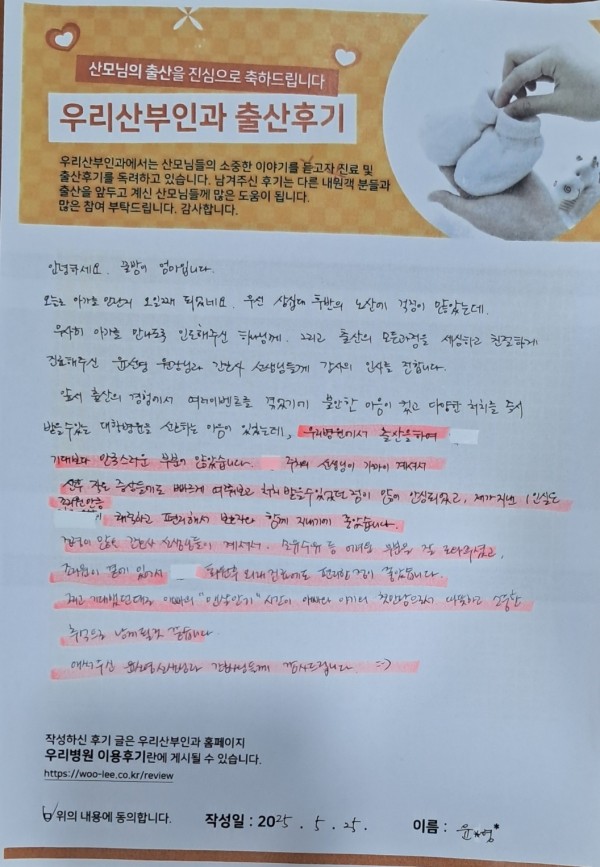 산모님의 출산을 진심으로 축하드립니다
우리산부인과 출산후기
우리산부인과에서는 산모님들의 소중한 이야기를 듣고자 진료 및
출산후기를 독려하고 있습니다. 남겨주신 후기는 다른 내원객 분들과
출산을 앞두고 계신 산모님들께 많은 도움이 됩니다.
많은 참여 부탁드립니다. 감사합니다.
안녕하세요. 엄마입니다.
오늘로 아가를 만난지 오일째 되었네요. 우선 삼십대 후반의 노산에 걱정이 많았는데,
무사히 아가를 만나도록 인도해주신 하나님께, 그리고 출산의 모든과정을 세심하고 친절하게
진료해주신 윤선영 원장님과 간호사 선생님들께 감사의 인사를 전합니다.
앞서 출산의 경험에서 여러이벤트를 겪었기에 불안한 마음이 컸고 다양한 처치를 즉시
받을수있는 대학병원을 선호하는 마음이 있었는데, 우리병원에서 출산을하며
기대보다 만족스러운 부분이 많았습니다. 주치의 선생님이 가까이 계셔서
산후 작은 증상들에도 빠르게 여쭤보고 처치 받을수있었던 점이 많이 안심되었고, 제가 지낸 1인실은
쾌적하고 편리해서 보호자와 함께 지내기에 좋았습니다.
경험이 많은 간호사 선생님들이 계셔서, 모유수유 등 어려운 부분을 잘 도와주셨고,
조리원이 곁에 있어서 퇴원후 외래진료에도 편리한 점이 좋았습니다.
최고 기대했던대로 아빠의 "맨살안기" 시간이 아빠와 아기의 첫만남으로서 따뜻하고 소중한
추억으로 남게될것 같습니다
애써주신 원장님과 간호사님들께 감사드립니다. :-)
작성하신 후기 글은 우리산부인과 홈페이지
우리병원 이용후기란에 게시될 수 있습니다.
https://woo-lee.co.kr/review
위의 내용에 동의합니다. 작성일 : 2025 . 5 . 25. 이름 : 윤*영*